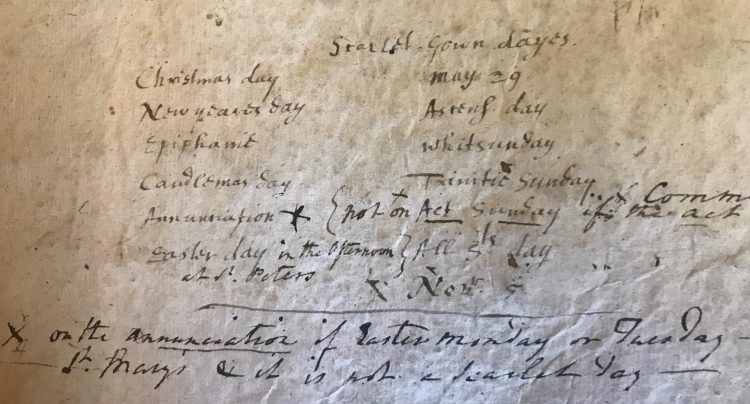 Scarlet Gown dayes.
Christmas day may 29
New yeares day Ascens. day
Epiphanie whitsunday
Candlemas day Trinitie Sunday
Annunciation x {not on Act Sunday if the act
Easter day in the afternoon} All Sts day
at St. Peters
x Nov. 5.
x on the annunciation if Easter monday or Tuesday —
St. Marys & it is not a Scarlet day —